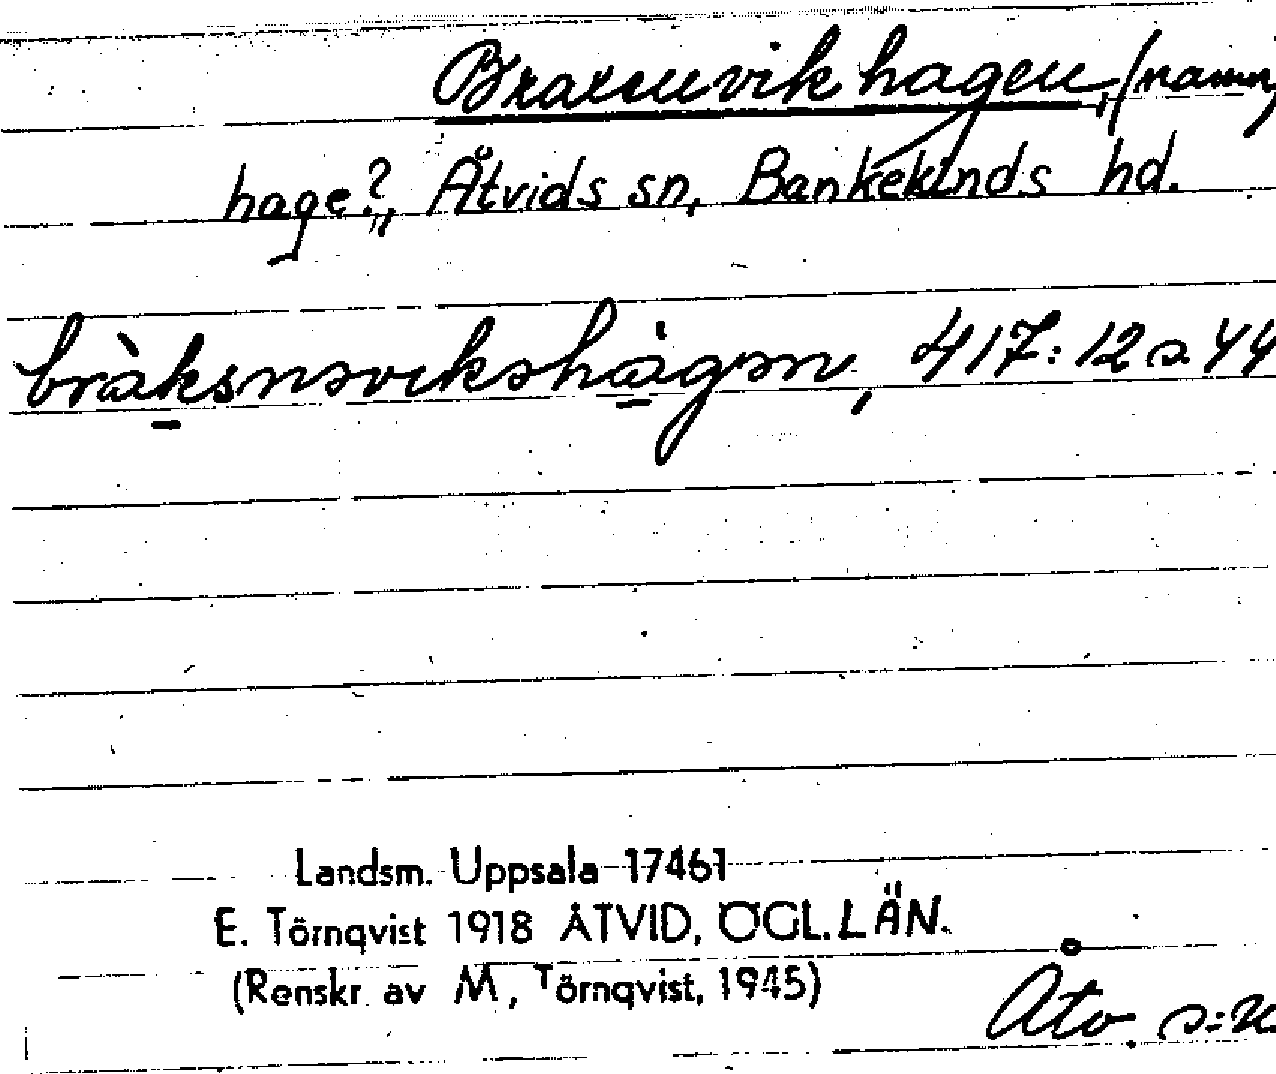 Braxenvik hagen, (namn,
hage?„ Åtvids sn, Bankekinds hd.
bràksnəvikshágən, 417:12 s. 44
Landsm. Uppsala 17461
E. Törnqvist 1918 ÅTVID, ÖGL. LÄN.
(Renskr. av M, Törnqvist, 1945)
Åtv.